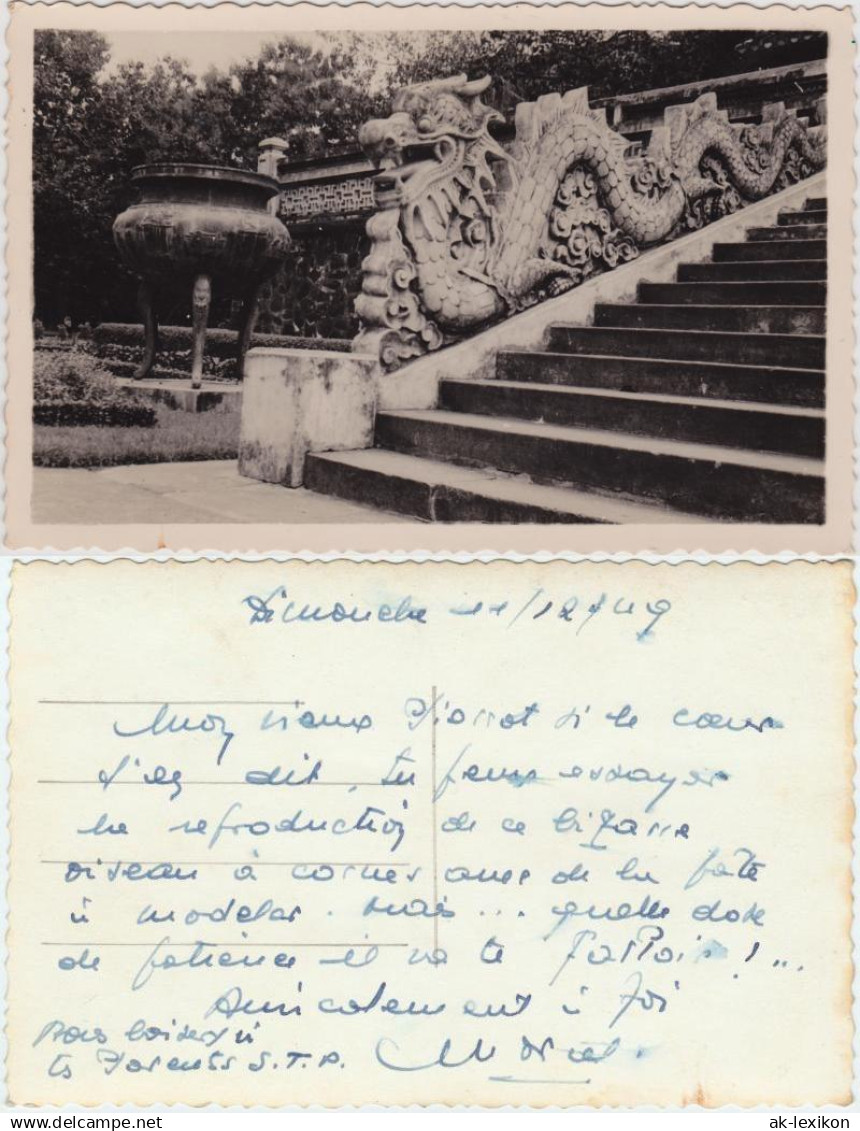 Dimanche 11/12/49
Mon vieux Pierrot si le cœur
t'en dit, tu peux essayer
la reproduction de ce bizarre
oiseau à cornes avec de la pâte
à modeler. Mais... quelle dose
de patience il va te falloir!...
Amicalement à toi
Gros baisers à
ts Parents S.T.P.
ak-lexikon